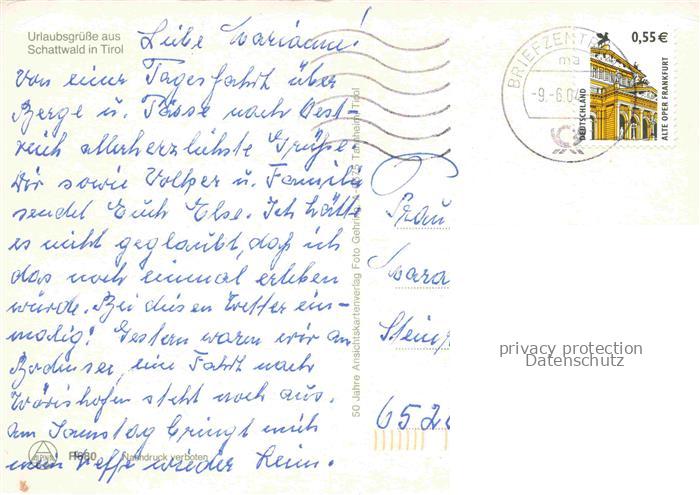 Urlaubsgrüße aus
Schattwald in Tirol
Liebe Marianne!
Von einer Tagesfahrt über
Berge u. Pässe nach Öst-
reich allerherzlichste Grüße.
Dir sowie Volker u. Familie
sendet Euch Else. Ich hätte
es nicht geglaubt, daß ich
das noch einmal erleben
würde. Bei diesen Wetter ein-
malig! Gestern waren wir am
Bodensee, eine Fahrt nach
Wörishofen steht noch aus.
Am Samstag bringt mich
mein Neffe wieder heim.
R680 Nachdruck verboten
50 Jahre Ansichtskartenverlag Foto Gehring, Tannheim, Tirol
BRIEFZENTRUM
ma
-9.-6.04
0,55 €
DEUTSCHLAND
ALTE OPER FRANKFURT
Frau
Mara
Stein
6526
privacy protection
Datenschutz